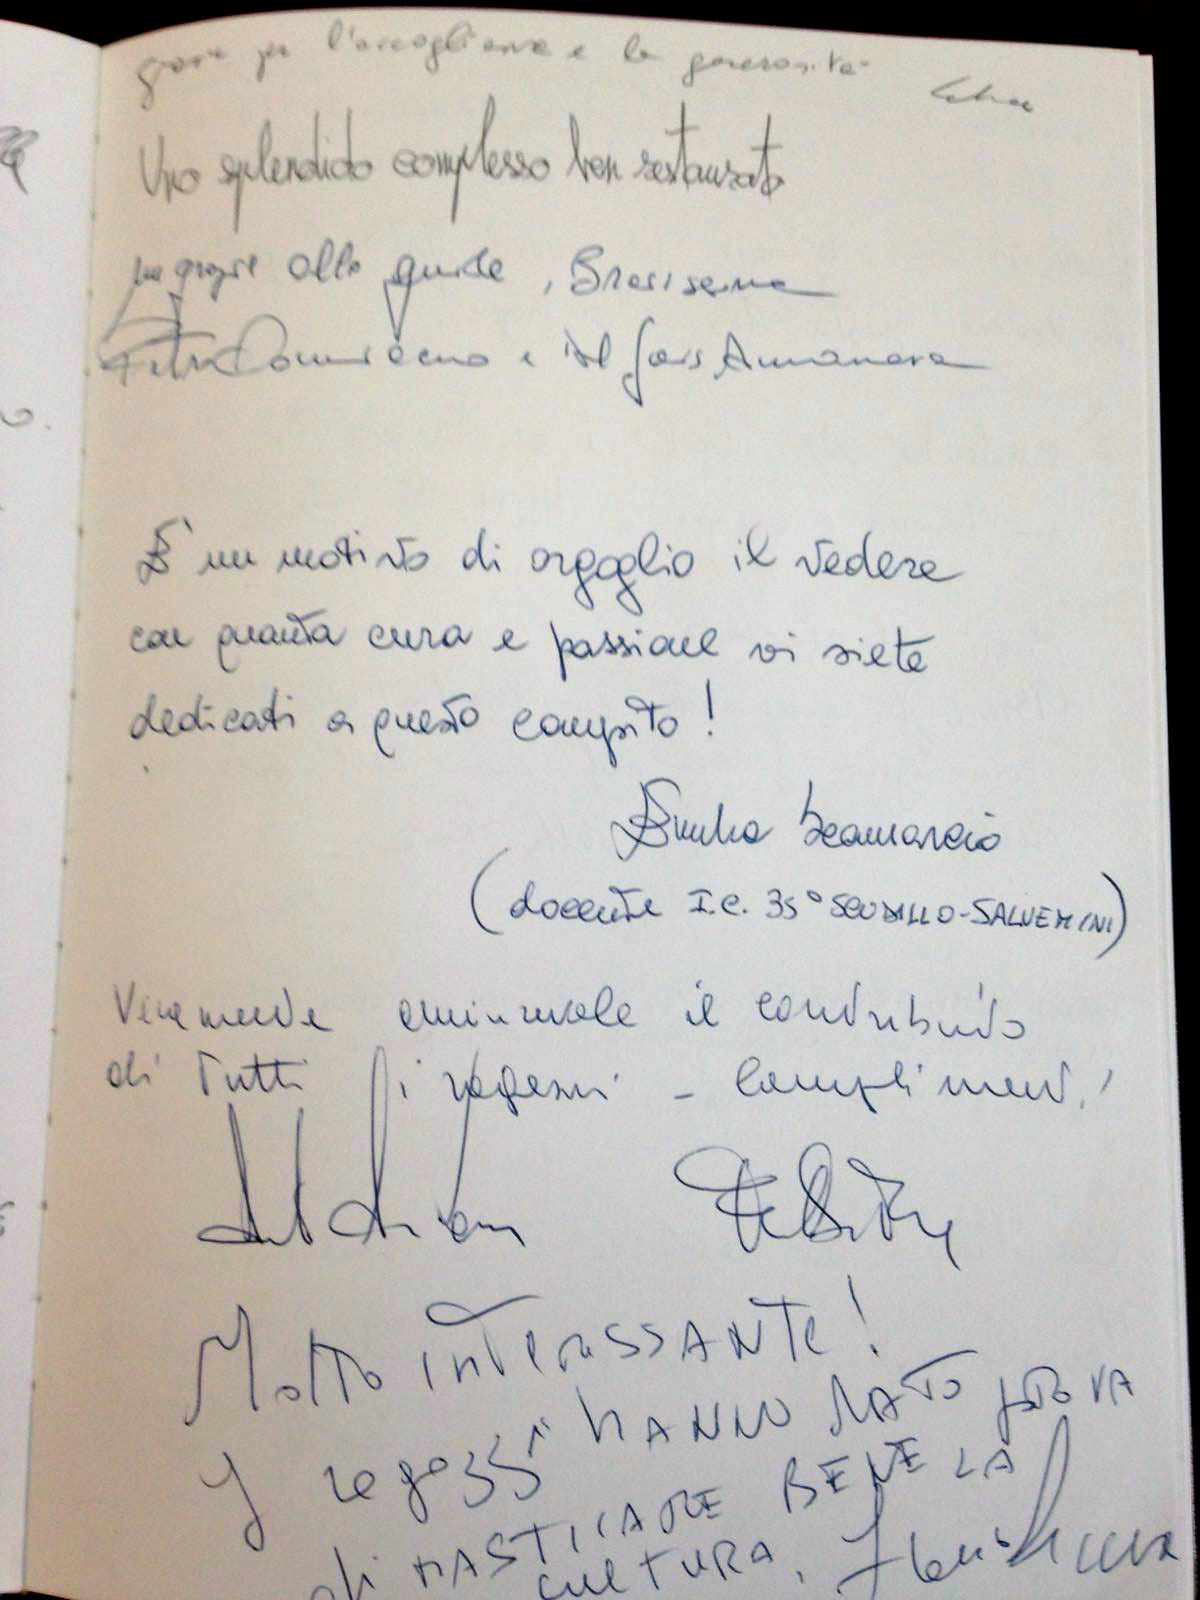 grazie per l'accoglienza e la generosità
Uno splendido complesso ben restaurato
grazie alla guida, Bravissima
E' un motivo di orgoglio il vedere
con quanta cura e passione vi siete
dedicati a questo compito!
Emilia Scamarcio
(docente I.C. 35° SCUDILLO-SALVEMINI)
Veramente ammirevole il contributo
di tutti i ragazzi - Complimenti!
Molto interessante!
I ragazzi hanno dato prova
di masticare bene la
cultura.